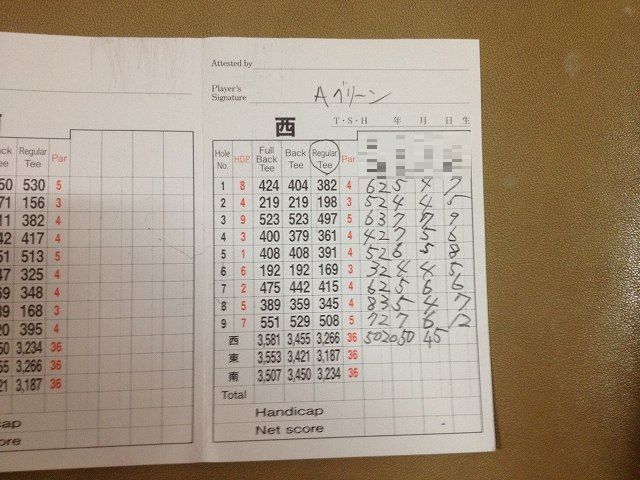 Attested by
Player's Signature Aグリーン
西 T・S・H 年 月 日 生
Regular Tee Par
Hole No. H.D.P. Full Back Tee Back Tee Regular Tee Par
50 530 5 1 8 424 404 382 4 6 2 5 4 7
71 156 3 2 4 219 219 198 3 5 2 4 4
11 382 4 3 9 523 523 497 5 6 3 7 7 9
42 417 4 4 3 400 379 361 4 4 2 7 5 6
51 513 5 5 1 408 408 391 4 5 2 6 5 8
47 325 4 6 6 192 192 169 3 3 2 4 4 5
69 348 4 7 2 475 442 415 4 6 2 5 6 6
89 168 3 8 5 389 359 345 4 8 3 5 4 7
20 395 4 9 7 551 529 508 5 7 2 7 6 12
50 3,234 36 西 3,581 3,455 3,266 36 50 20 50 45
55 3,266 36 東 3,553 3,421 3,187 36
21 3,187 36 南 3,507 3,450 3,234 36
Total
Handicap
Net score
cap
ore